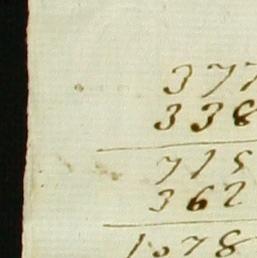 377
338
715
362
1078